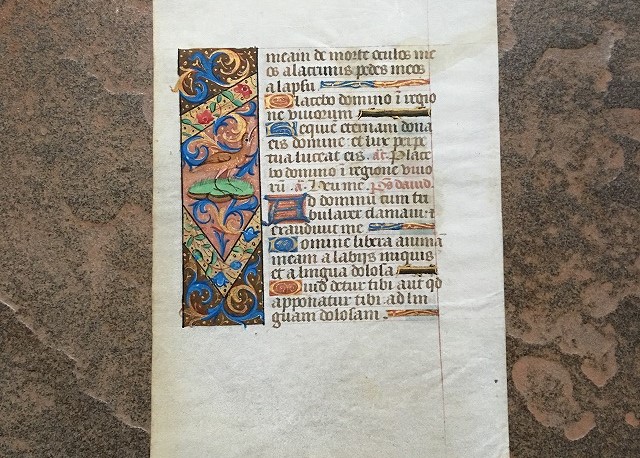 meam de morte oculos me
os a lacrimis pedes meos
a lapsu
Placebo domino ī regio
ne viuorum
Requie eternam dona
eis domine et lux perpe
tua luceat eis. añ. Place
bo domino ī regione viuo
rū. añ. Heu me. ps̄ dauid.
Ad dominū cum tri
bularer clamaui et
exaudiuit me
Domine libera animā
meam a labijs iniquis
et a lingua dolosa
Quid detur tibi aut qd
apponatur tibi ad lin
guam dolosam.